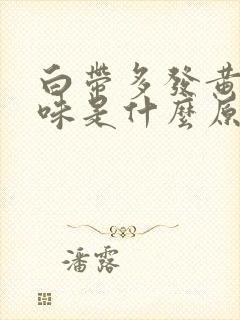 白带多發黄
味是什麼原
潘露